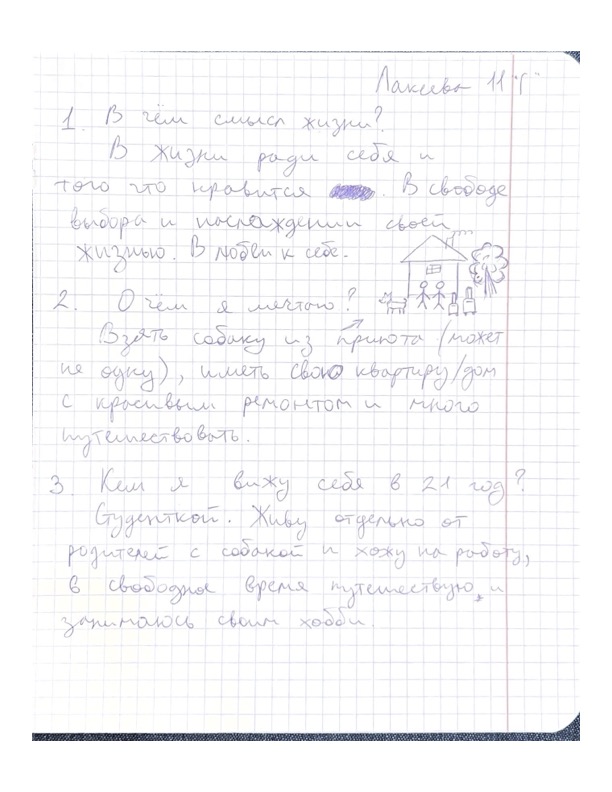 Лаксева 11 "Г"
1. В чём смысл жизни?
В жизни ради себя и
того что нравится. В свободе
выбора и наслаждении своей
жизнью. В любви к себе.
2. О чём я мечтаю?
Взять собаку из приюта (может
не одну), иметь свою квартиру/дом
с красивым ремонтом и много
путешествовать.
3. Кем я вижу себя в 21 год?
Студенткой. Живу отдельно от
родителей с собакой и хожу на работу,
в свободное время путешествую и
занимаюсь своим хобби.